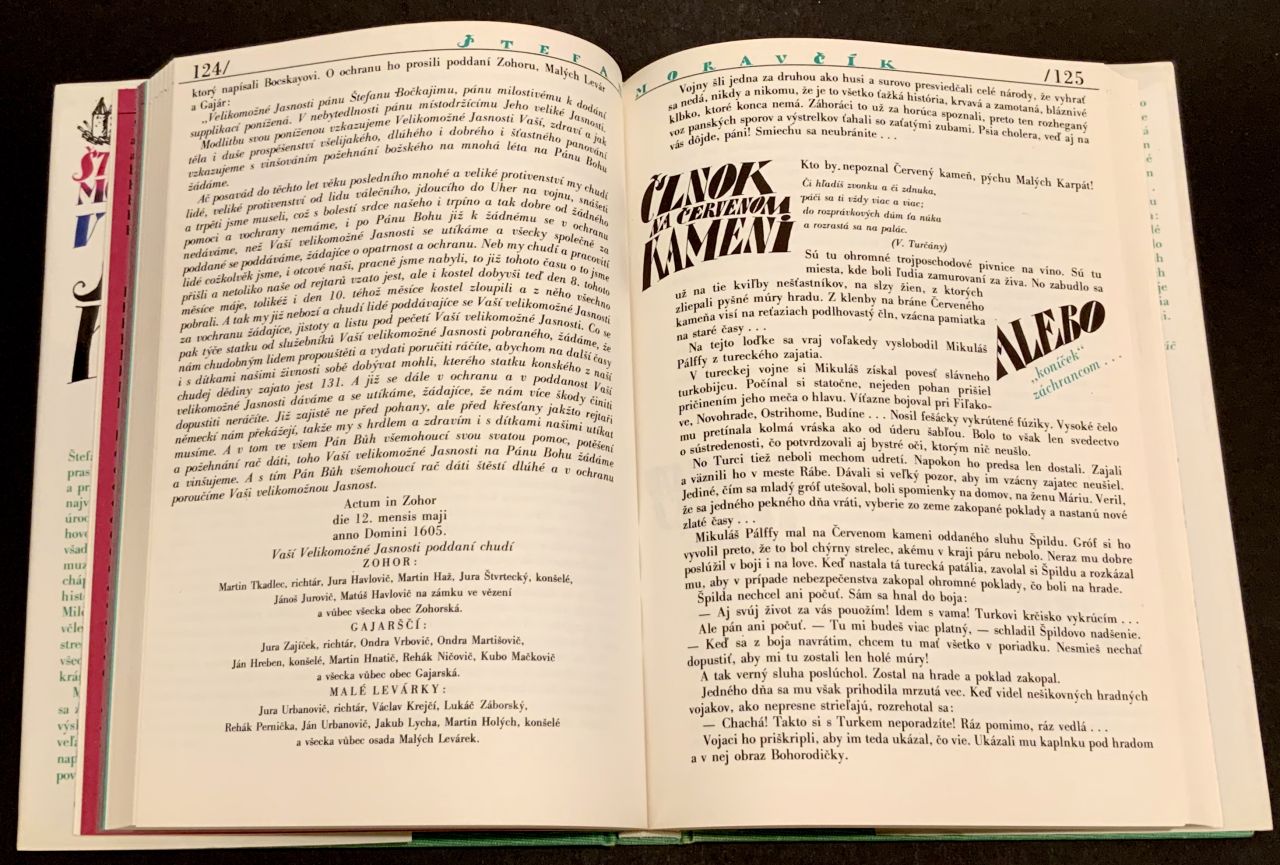 ŠTEFAN MORAVČÍK
124/
ktorý napísali Bocskayovi. O ochranu ho prosili poddaní Zohoru, Malých Levár
a Gajár:
„Velikomožné Jasnosti pánu Štefanu Bočkajimu, pánu milostivému k dodání
supplikací ponížená. V nebytedlnosti pánu místodržícímu Jeho veliké Jasnosti.
Modlitbu svou poníženou vzkazujeme Velikomožné Jasnosti Vaší, zdraví a jak
těla i duše prospěšenství všelijakého, dlúhého i dobrého i šťastného panování
vzkazujeme s vinšováním požehnání božského na mnohá léta na Pánu Bohu
žádáme.
Ač posavád do těchto let věku posledního mnohé a veliké protivenství my chudí
lidé, veliké protivenství od lidu válečního, jdoucího do Uher na vojnu, snášeti
a trpěti jsme museli, což s bolestí srdce našeho i trpíno a tak dobre od žádného
pomoci a vochrany nemáme, i po Pánu Bohu již k žádnému se v ochranu
nedáváme, než Vaší velikomožné Jasnosti se utíkáme a všecky společně za
poddané se poddáváme, žádajíce o opatrnost a ochranu. Neb my chudí a pracovití
lidé cožkolvěk jsme, i otcové naší, pracně jsme nabyli, to již tohoto času o to jsme
přišli a netoliko naše od rejtarů vzato jest, ale i kostel dobyvši teď den 8. tohoto
měsíce máje, tolikéž i den 10. téhož měsíce kostel zloupili a z něho všechno
pobrali. A tak my již nebozí a chudí lidé poddávajíce se Vaší velikomožné Jasnosti
za vochranu žádajíce, jistoty a listu pod pečetí Vaší velikomožné Jasnosti. Co se
pak týče statku od služebníků Vaší velikomožné Jasnosti pobraného, žádáme, že
nám chudobným lidem propouštěti a vydati poručiti ráčíte, abychom na další časy
i s dítkami našimi živnosti sobě dobývat mohli, kterého statku konského z naší
chudej dědiny zajato jest 131. A již se dále v ochranu a v poddanost Vaší
velikomožné Jasnosti dáváme a se utíkáme, žádajíce, že nám více škody činiti
dopustiti neráčíte. Již zajistě ne před pohany, ale před křesťany jakžto rejtaři
německí nám překážejí, takže my s hrdlem a zdravím i s dítkami našimi utíkat
musíme. A v tom ve všem Pán Bůh všemohoucí svou svatou pomoc, potěšení
a požehnání rač dáti, toho Vaší velikomožné Jasnosti na Pánu Bohu žádáme
a vinšujeme. A s tím Pán Bůh všemohoucí rač dáti štěstí dlúhé a v ochranu
poroučíme Vaši velikomožnou Jasnost.
Actum in Zohor
die 12. mensis maji
anno Domini 1605.
Vaší Velikomožné Jasnosti poddaní chudí
ZOHOR:
Martin Tkadlec, richtár, Jura Havlovič, Martin Haž, Jura Štvrtecký, konšelé,
János Jurovič, Matúš Havlovič na zámku ve vězení
a vůbec všecka obec Zohorská.
GAJARŠČÍ:
Jura Zajíček, richtár, Ondra Vrbovič, Ondra Martišovič,
Ján Hreben, konšelé, Martin Hnatič, Rehák Ničovič, Kubo Mačkovič
a všecka vůbec obec Gajarská.
MALÉ LEVÁRKY:
Jura Urbanovič, richtár, Václav Krejčí, Lukáč Záborský,
Rehák Pernička, Ján Urbanovič, Jakub Lycha, Martin Holých, konšelé
a všecka vůbec osada Malých Levárek.
/125
Vojny šli jedna za druhou ako husi a surovo presviedčali celé národy, že vyhrať
sa nedá, nikdy a nikomu, že je to všetko ťažká história, krvavá a zamotaná, bláznivé
klbko, ktoré konca nemá. Záhoráci to už za horúca spoznali, preto ten rozheganý
voz panských sporov a výstrelkov ťahali so zaťatými zubami. Psia cholera, veď aj na
vás dôjde, páni! Smiechu sa neubránite . . .
ČLNOK
NA ČERVENOM
KAMENI
Kto by nepoznal Červený kameň, pýchu Malých Karpát!
Či hľadíš zvonku a či zdnuka,
páči sa ti vždy viac a viac;
do rozprávkových dúm ťa núka
a rozrastá sa na palác.
(V. Turčány)
Sú tu ohromné trojposchodové pivnice na víno. Sú tu
miesta, kde boli ľudia zamurovaní za živa. No zabudlo sa
už na tie kviľby nešťastníkov, na slzy žien, z ktorých
zliepali pyšné múry hradu. Z klenby na bráne Červeného
kameňa visí na reťaziach podlhovastý čln, vzácna pamiatka
na staré časy . . .
ALEBO
„koníček“
záchrancom . . .
Na tejto loďke sa vraj voľakedy vyslobodil Mikuláš
Pálffy z tureckého zajatia.
V tureckej vojne si Mikuláš získal povesť slávneho
turkobijcu. Počínal si statočne, nejeden pohan prišiel
pričinením jeho meča o hlavu. Víťazne bojoval pri Fiľako-
ve, Novohrade, Ostrihome, Budíne . . . Nosil fešácky vykrútené fúziky. Vysoké čelo
mu pretínala kolmá vráska ako od úderu šabľou. Bolo to však len svedectvo
o sústredenosti, čo potvrdzovali aj bystré oči, ktorým nič neušlo.
No Turci tiež neboli mechom udretí. Napokon ho predsa len dostali. Zajali
a väznili ho v meste Rábe. Dávali si veľký pozor, aby im vzácny zajatec neušiel.
Jediné, čím sa mladý gróf utešoval, boli spomienky na domov, na ženu Máriu. Veril,
že sa jedného pekného dňa vráti, vyberie zo zeme zakopané poklady a nastanú nové
zlaté časy . . .
Mikuláš Pálffy mal na Červenom kameni oddaného sluhu Špildu. Gróf si ho
vyvolil preto, že to bol chýrny strelec, akému v kraji páru nebolo. Neraz mu dobre
poslúžil v boji i na love. Keď nastala tá turecká patália, zavolal si Špildu a rozkázal
mu, aby v prípade nebezpečenstva zakopal ohromné poklady, čo boli na hrade.
Špilda nechcel ani počuť. Sám sa hnal do boja:
— Aj svúj život za vás pouožím! Idem s vama! Turkovi krčisko vykrúcím . . .
Ale pán ani počuť. — Tu mi budeš viac platný, — schladil Špildovo nadšenie.
— Keď sa z boja navrátim, chcem tu mať všetko v poriadku. Nesmieš nechať
dopustiť, aby mi tu zostali len holé múry!
A tak verný sluha poslúchol. Zostal na hrade a poklad zakopal.
Jedného dňa sa mu však prihodila mrzutá vec. Keď videl nešikovných hradných
vojakov, ako nepresne strieľajú, rozrehotal sa:
— Chachá! Takto si s Turkem neporadzíte! Ráz pomimo, ráz vedlá . . .
Vojaci ho priškripli, aby im teda ukázal, čo vie. Ukázali mu kaplnku pod hradom
a v nej obraz Bohorodičky.